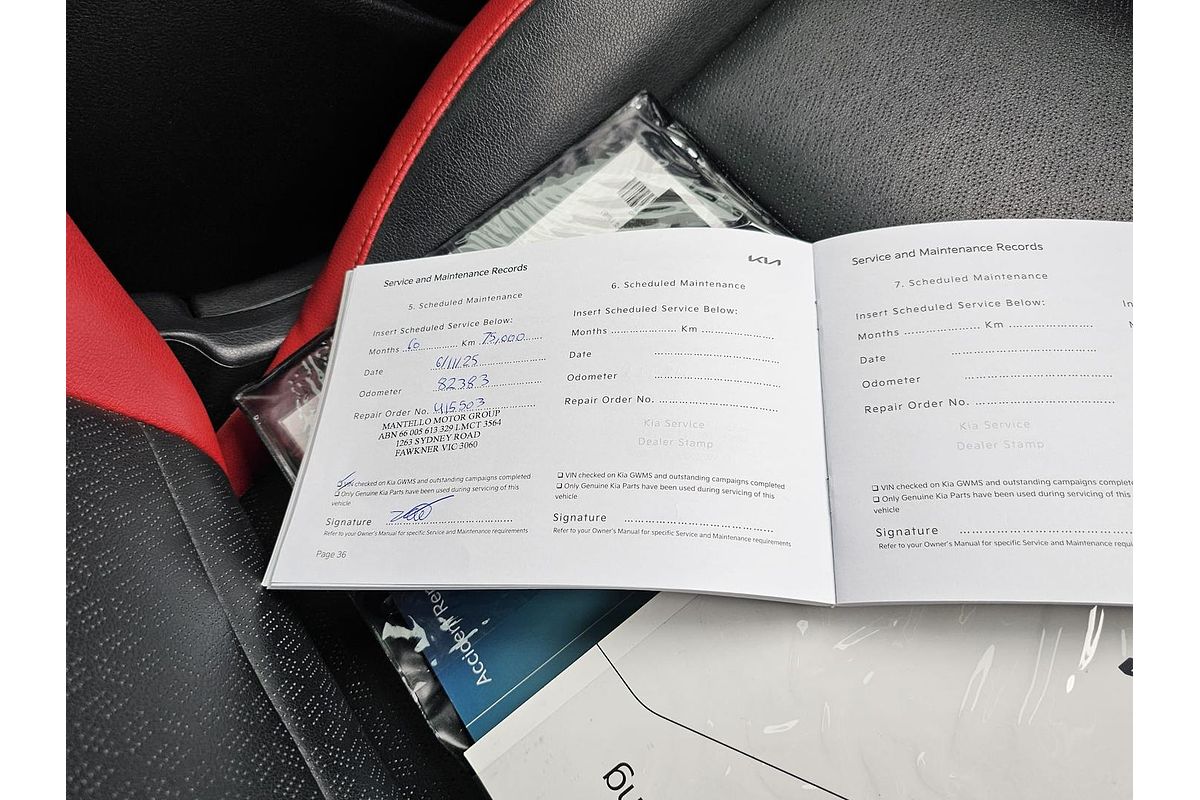 Service and Maintenance Records
5. Scheduled Maintenance
Insert Scheduled Service Below:
Months 60 Km 75,000
Date 6/11/25
Odometer 82383
Repair Order No. 415503
MANTELLO MOTOR GROUP
ABN 66 005 613 329 LMCT 3564
1263 SYDNEY ROAD
FAWKNER VIC 3060
VIN checked on Kia GWMS and outstanding campaigns completed
❑ Only Genuine Kia Parts have been used during servicing of this
vehicle
Signature
Refer to your Owner's Manual for specific Service and Maintenance requirements
Page 36
KIA
6. Scheduled Maintenance
Insert Scheduled Service Below:
Months .................... Km ......................
Date ......................
Odometer ......................
Repair Order No. ......................
Kia Service
Dealer Stamp
❑ VIN checked on Kia GWMS and outstanding campaigns completed
❑ Only Genuine Kia Parts have been used during servicing of this
vehicle
Signature ......................
Refer to your Owner's Manual for specific Service and Maintenance requirements
Service and Maintenance Records
7. Scheduled Maintenance
Insert Scheduled Service Below:
Months .................... Km ......................
Date ......................
Odometer ......................
Repair Order No. ......................
Kia Service
Dealer Stamp
❑ VIN checked on Kia GWMS and outstanding campaigns
❑ Only Genuine Kia Parts have been used during servicing of
vehicle
Signature ......................
Refer to your Owner's Manual for specific Service and Maintenance
Accident